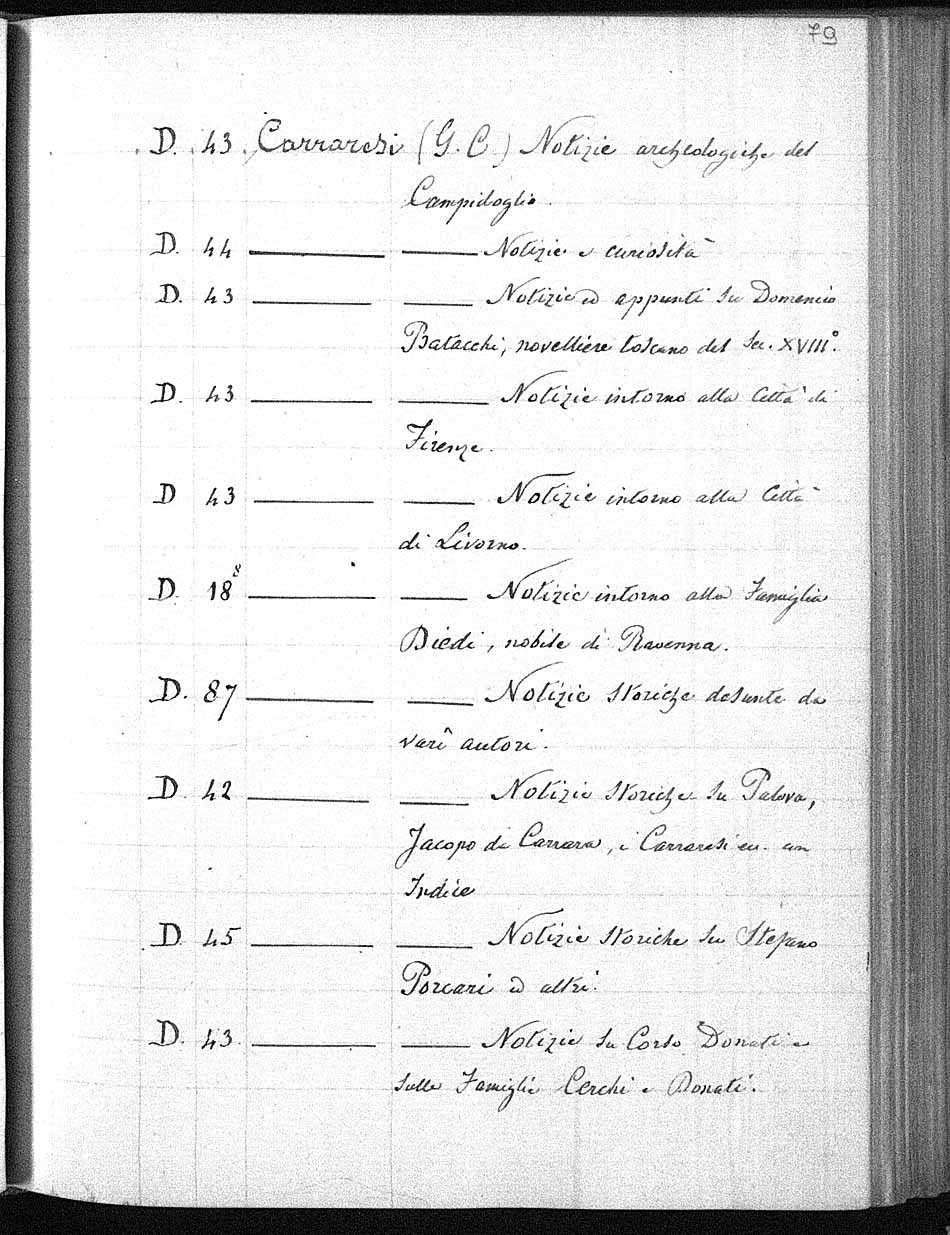 79
D. 43 Carraresi (G. C.) Notizie archeologiche del
Campidoglio.
D. 44 ——— ——— Notizie e curiosità
D. 43 ——— ——— Notizie ed appunti su Domenico
Batacchi, novelliere toscano del Sec. XVIII°.
D. 43 ——— ——— Notizie intorno alla Città di
Firenze.
D 43 ——— ——— Notizie intorno alla Città
di Livorno.
D. 18⁸ ——— ——— Notizie intorno alla Famiglia
Diedi, nobile di Ravenna.
D. 87 ——— ——— Notizie storiche desunte da
varî autori.
D. 42 ——— ——— Notizie storiche su Padova,
Jacopo da Carrara, i Carraresi ec. con
Indice
D. 45 ——— ——— Notizie storiche su Stefano
Porcari ed altri.
D. 43 ——— ——— Notizie su Corso Donati e
sulle Famiglie Cerchi e Donati.